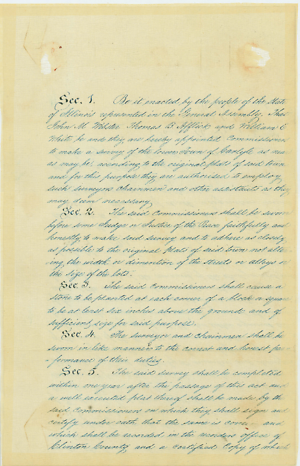 Sec. 1. Be it enacted by the people of the State
of Illinois represented in the General Assembly, That
John M. Webster Thomas B. Afflick and William C
White be and they are hereby appointed Commissioners
to make a survey of the town Town of Carlyle as near
as may be, according to the original plats of said town
and for this purpose they are authorized to employ
such surveyor Chainmen and other assistants as they
may deem necessary.
Sec. 2. The said commissioners shall be sworn
before some Judge or Justice of the Peace faithfully and
honestly to make said survey and to adhere as closely
as possible to the original plats of said town not alter
ing the width or dimention of the streets or alleys or
the size of the lots.
Sec. 3. The said commissioners shall cause a
stone to be planted at each corner of a block or square
to be at least six inches above the ground and of
sufficient size for said purpose.
Sec. 4. The surveyor and chainmen shall be
sworn in like manner to the correct and honest per
formance of their duties.
Sec. 5. The said survey shall be completed
within one year after the passage of this act and
a well executed plat thereof shall be made by the
said Commissioners on which they shall sign and
certify under oath that the same is correct and
which shall be recorded in the recorders office of
Clinton County and a certified copy of which